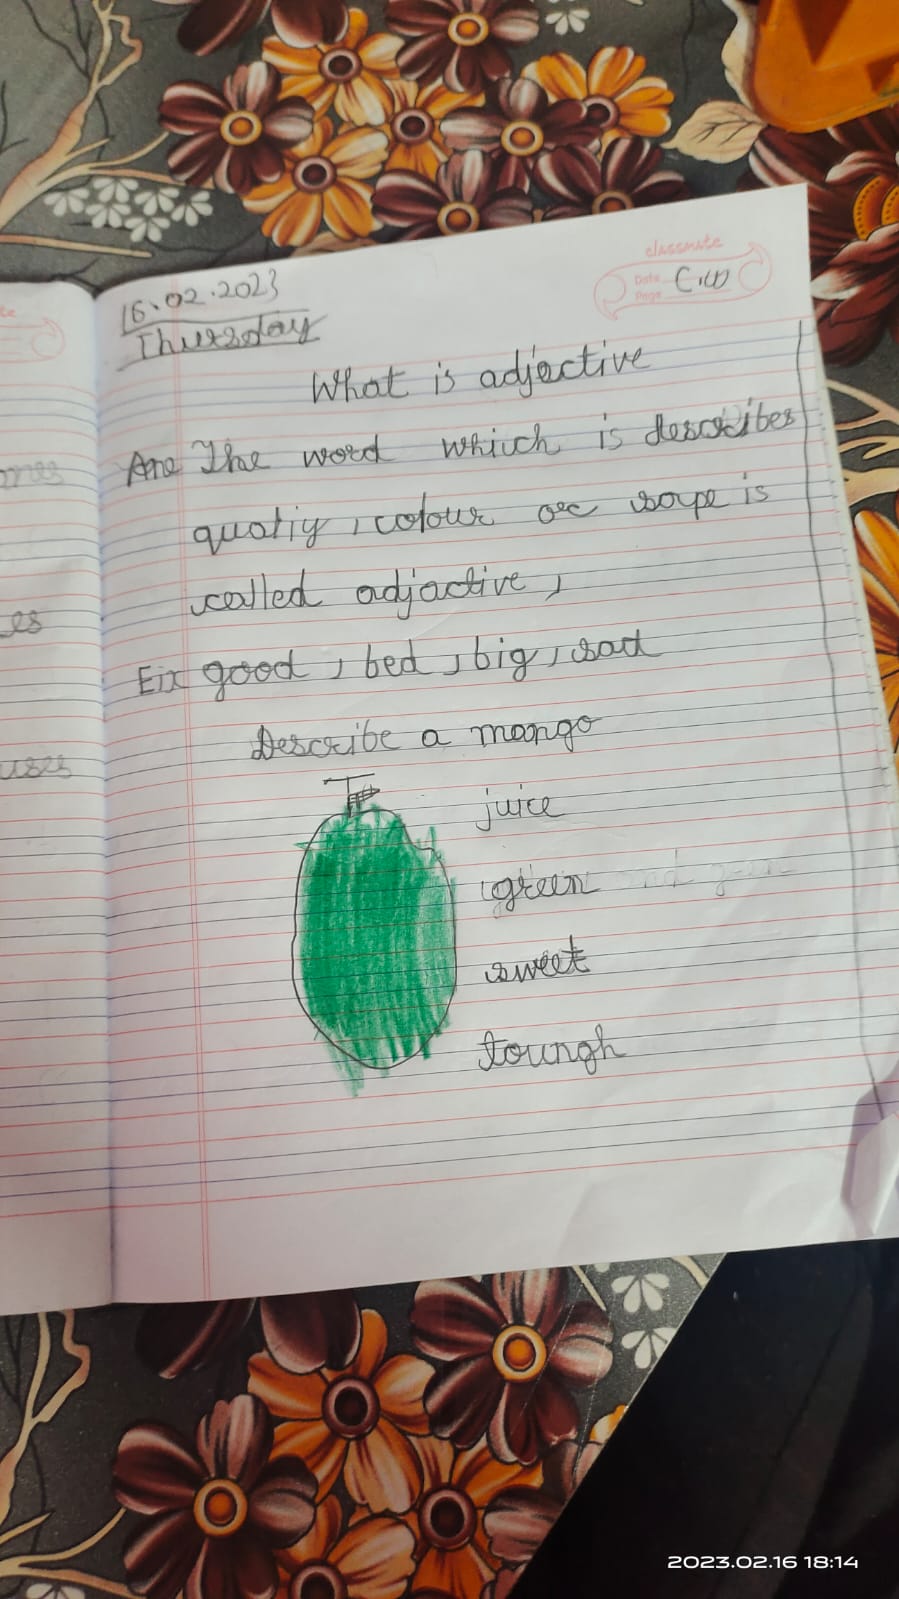 classmate
Date C.W
Page
16.02.2023
Thursday
What is adjective
Ans The word which is describes
quatiy, colour or sape is
called adjactive,
Eix good, bed, big, sad
Describe a mango
juice
green and green
sweet
toungh
mes
es
uses
2023.02.16 18:14